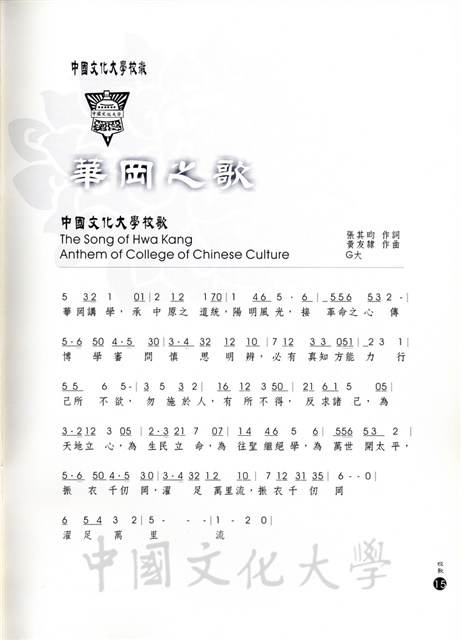 中國文化大學校徽
中國文化大學
華岡之歌
中國文化大學校歌
The Song of Hwa Kang
Anthem of College of Chinese Culture
張其昀 作詞
黃友棣 作曲
G大
5 32 1 01|2 12 170|1 46 5 · 6|556 532 -|
華岡講學，承中原之道統，陽明風光，接 革命之心傳
5·6 50 4·5 30|3·4 32 12 10|7 12 33 051|23 1|
博 學 審 問 慎 思 明 辨，必有 真知 方能 力 行
5 5 6 5-|3 5 3 2| 16 12 3 50|21 61 5 05|
己所 不欲，勿施於人，有所不得，反求諸己，為
3·212 3 05|2·321 7 07|14 46 5 6|556 53 2|
天地立心，為 生民立命，為 往聖繼絕學，為萬世 開太平，
5·6 50 4·5 30|3·4 32 12 10|7 12 31 35|6--0|
振 衣 千仞 岡，濯 足 萬里流，振衣千 仞 岡
6 54 3 2|5 - - -|1 - 2 0|
濯足 萬 里 流
中國文化大學
校歌
15